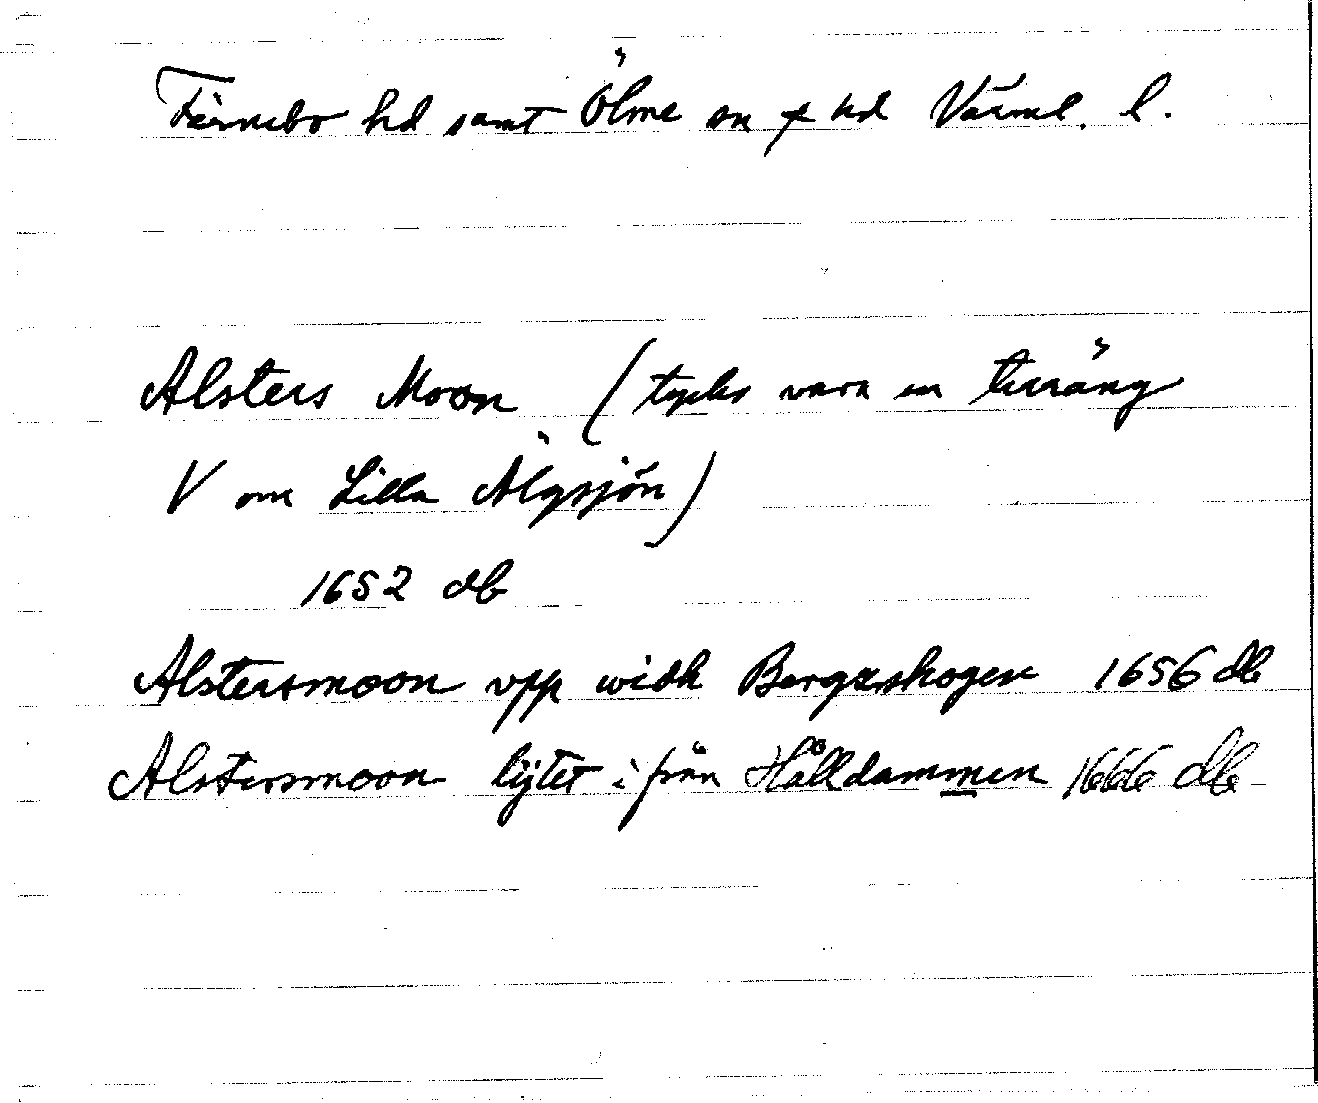 Färnebo hd samt Ölme sn o hd Värml. l.
Alsters Moon (tycks vara en terräng
V om Lilla Älgsjön)
1652 db
Alstersmoon vpp widh Bergzskogen 1656 db
Alstersmoon lijtet i från Hålldammen 1666 db